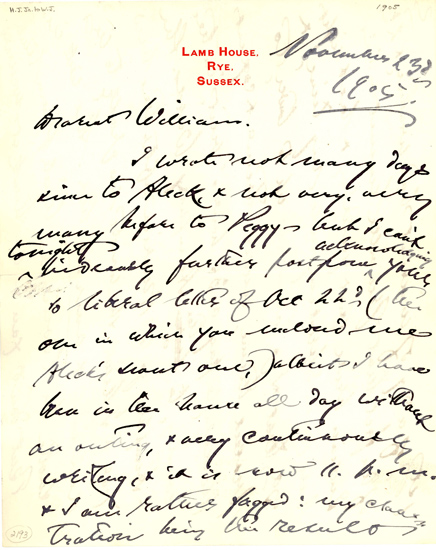 H.J. Jr. to W.J.
1905
LAMB HOUSE,
RYE,
SUSSEX.
November 23d
1905.
Dearest William.
I wrote not many days
since to Aleck, & not very, very
many before to Peggy – but I can't
tonight hideously further postpone acknowledging your
so liberal letter of Oct 22d (the
one in which you enclosed me
Aleck's sweet one,) albeit I have
been in the house all day without
an outing, & very continuously
writing, & it is now 11. p.m.
& I am rather fagged: my
being the result
2193